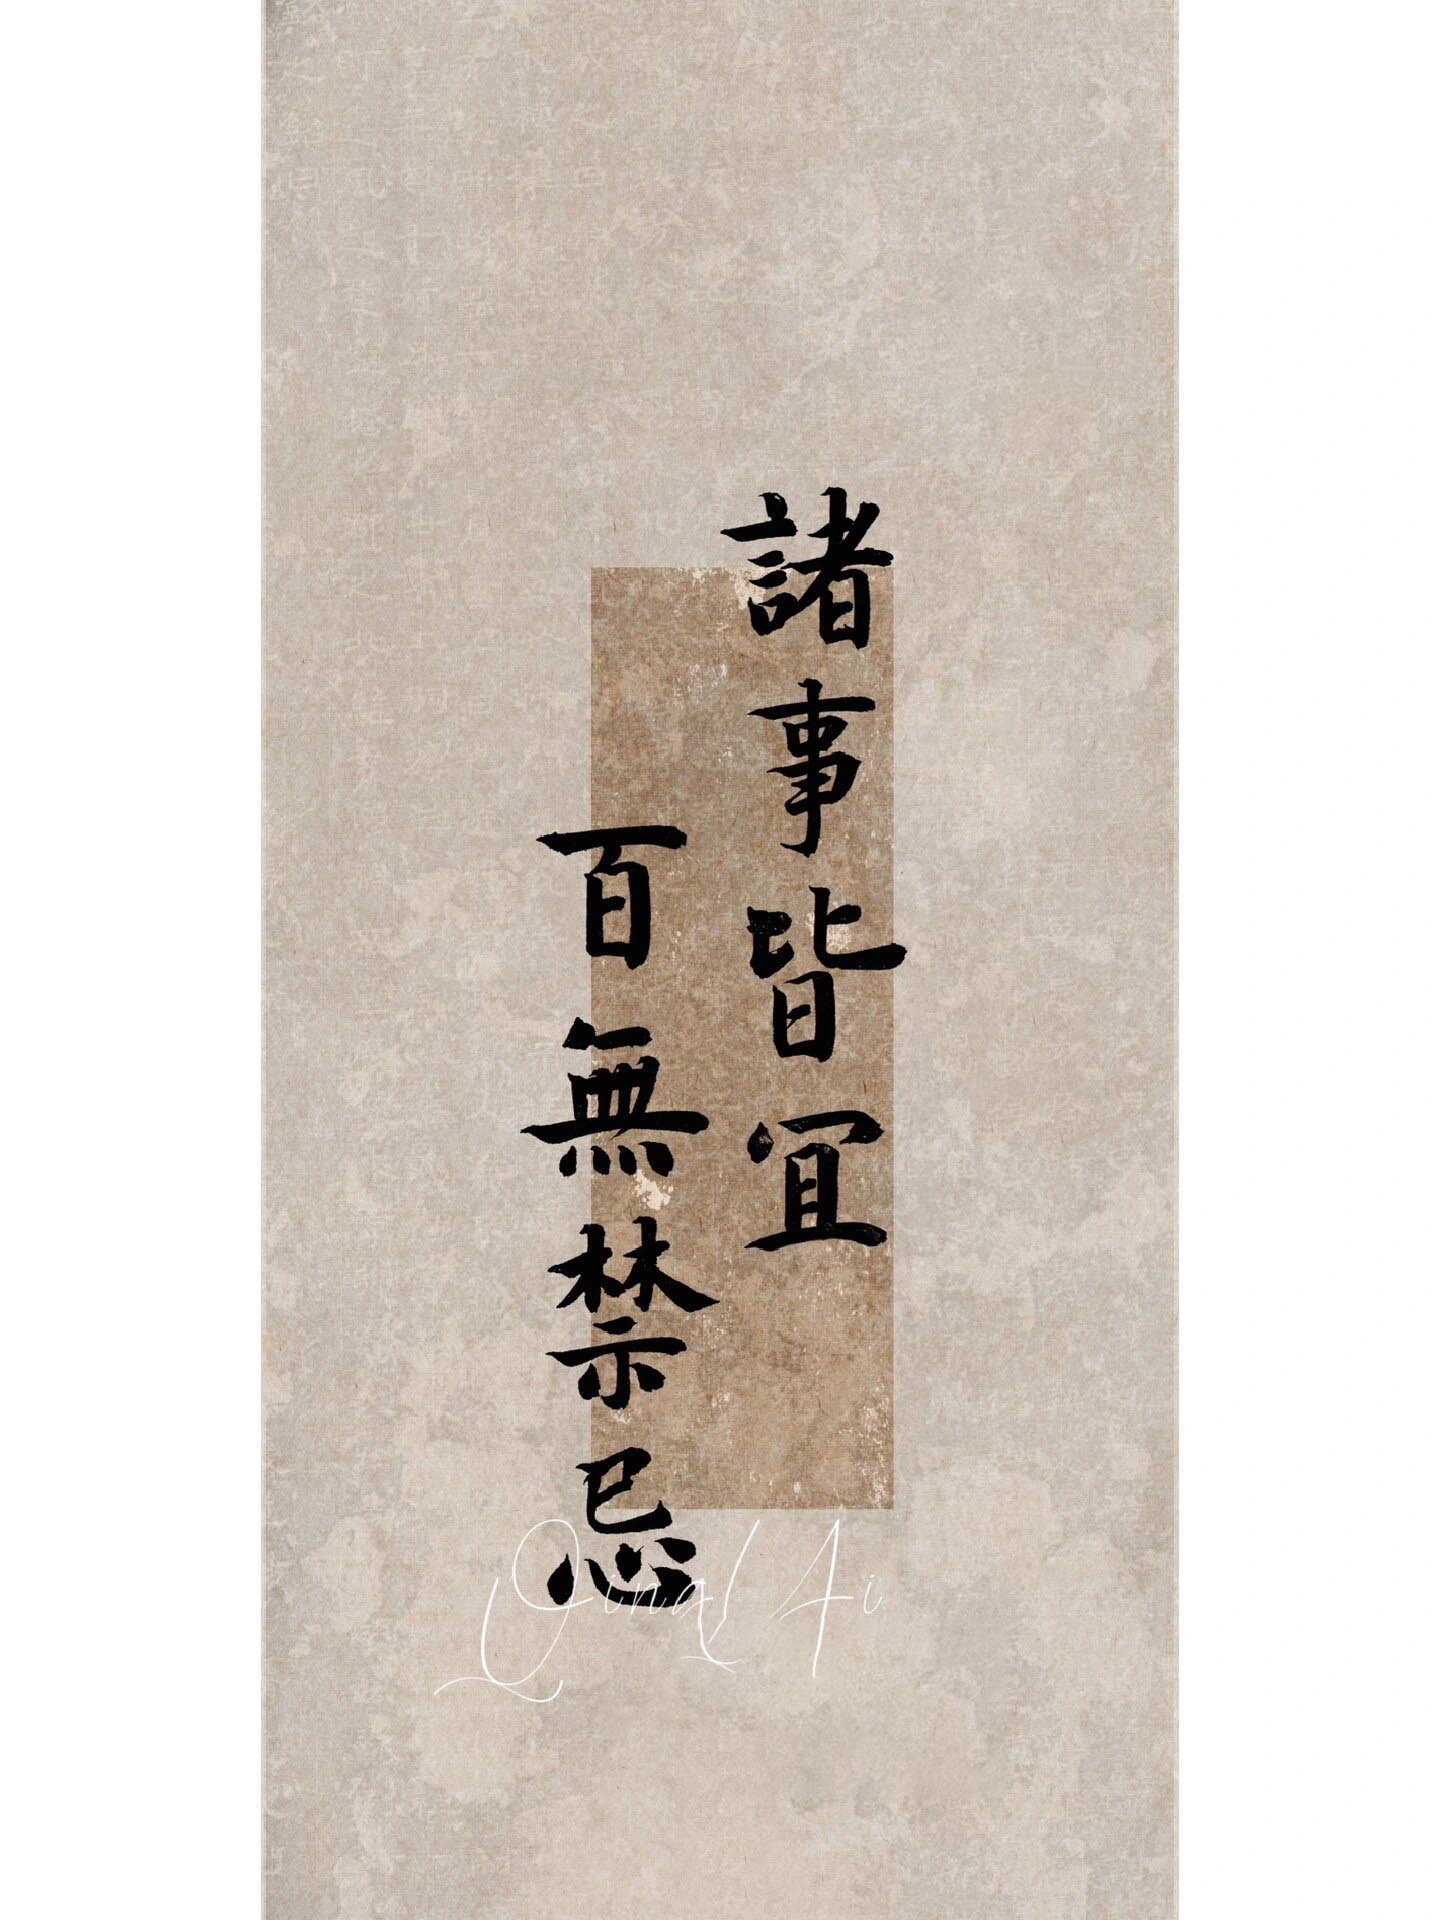 諸事皆宜
百無禁忌